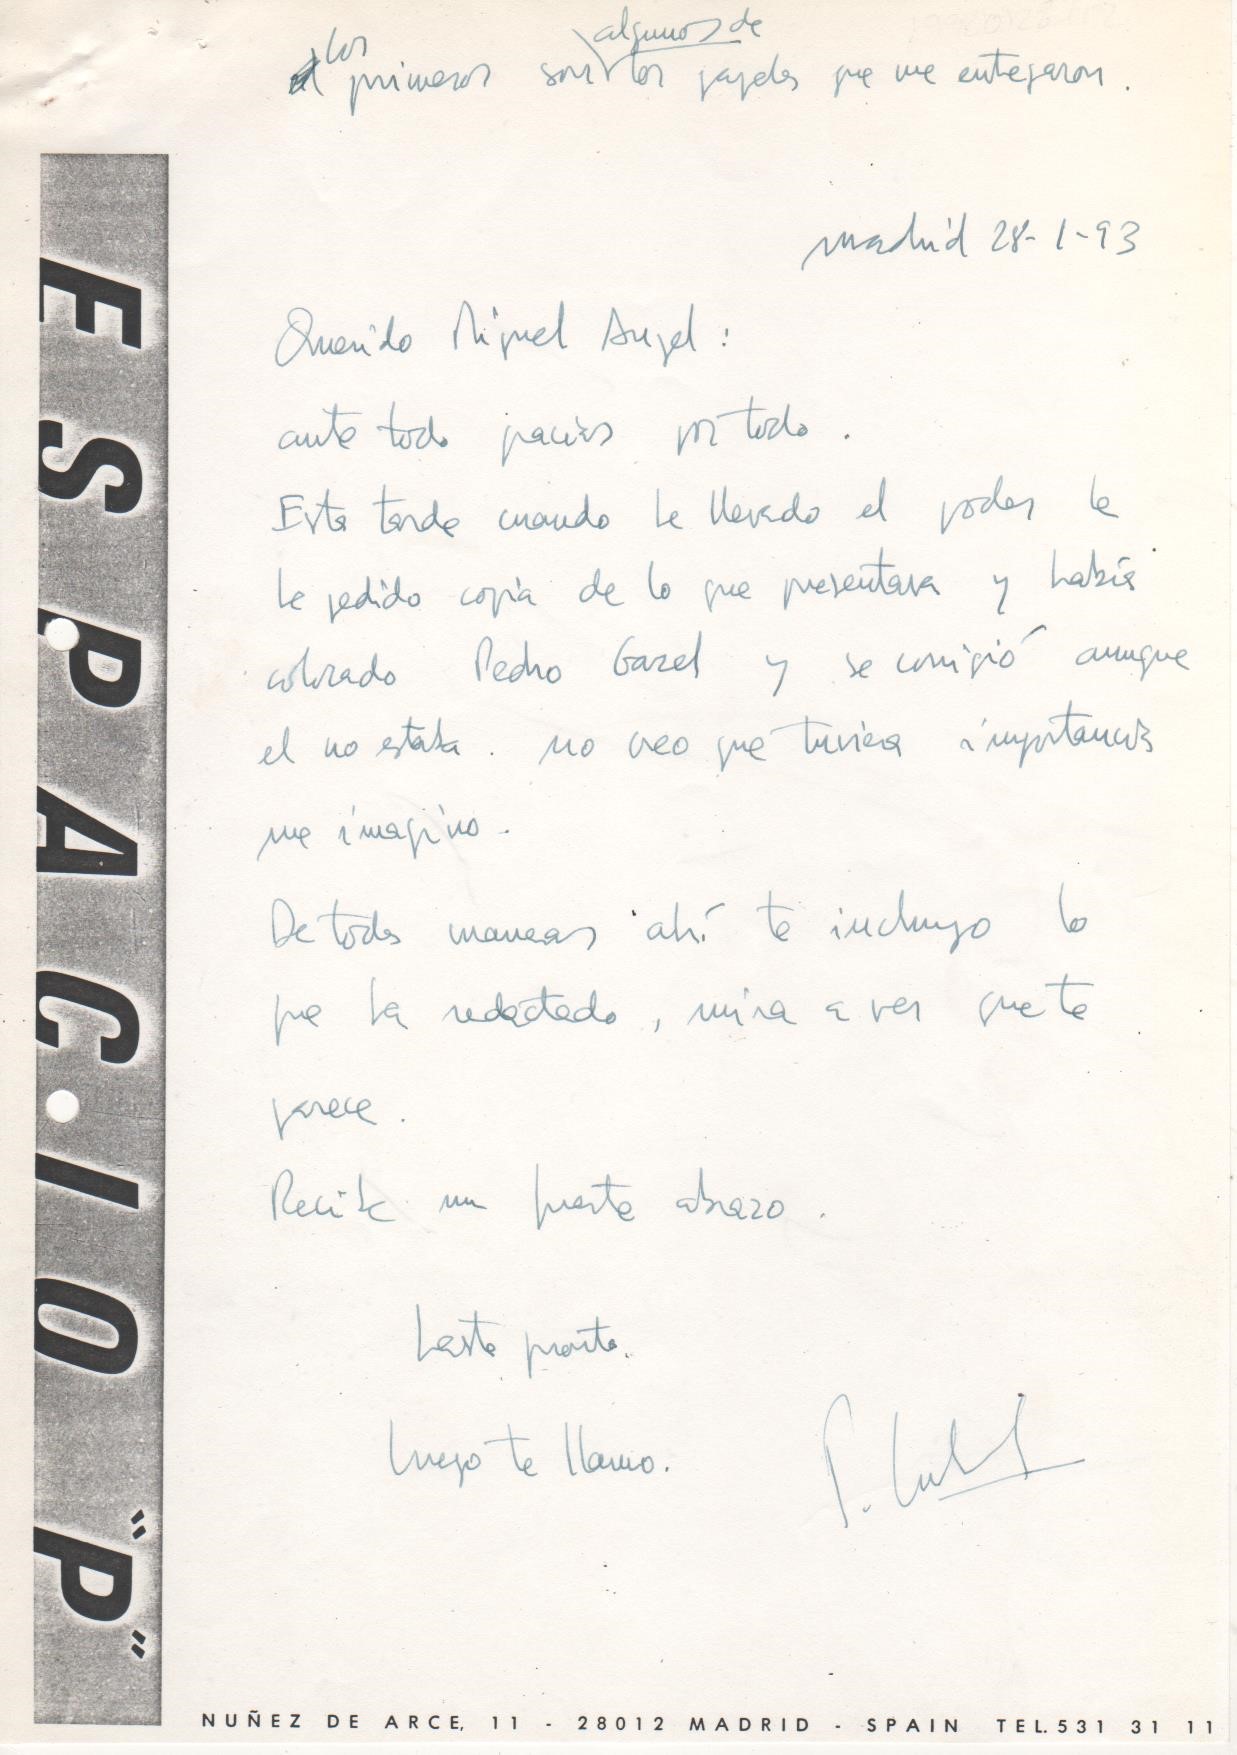 algunos de
los
primeros son los papeles que me entregaron.
madrid 28-1-93
Querido Miguel Angel:
ante todo gracias por todo.
Esta tarde cuando he llevado el poder le
he pedido copia de lo que presentara y había
colorado Pedro Garel y se corrigió aunque
el no estaba. no creo que tuviera importancia
me imagino.
De todas maneras ahí te incluyo lo
que ha redactado, mira a ver que te
parece.
Recibe un fuerte abrazo.
hasta pronto.
luego te llamo.
ESPACIO "P"
NUÑEZ DE ARCE, 11 - 28012 MADRID - SPAIN TEL. 531 31 11